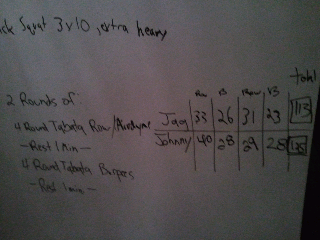 ck Squat 3x10, extra heavy
total
Row B Row B
2 Rounds of:
Jag 33 26 31 23 113
4 Round Tabata Row/Airdyne
Johnny 40 28 29 28 125
-Rest 1 Min-
4 Round Tabata Burpees
-Rest 1 min-